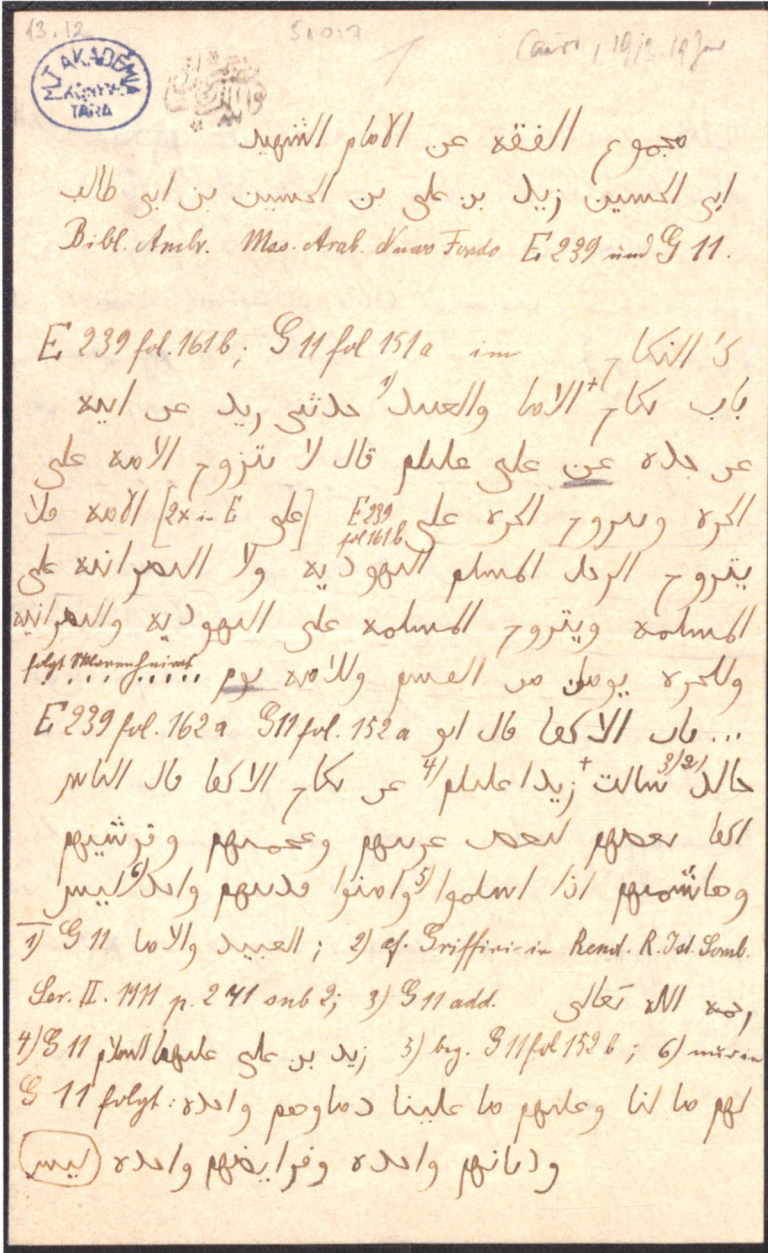 13.12
MT AKADÉMIA KÖNYVTÁRA
مجموع الفقه عن الامام الشهيد
ابى الحسين زيد بن على بن الحسين بن ابى طالب
Bibl. Ambr. Mss. Arab. Nuovo Fondo E 239 und G 11.
E 239 fol. 161b; G 11 fol 151a im ك' النكاح
باب نكاح + الاما والعبيد 1) حدثنى زيد عن ابيه
عن جده عن على عليلم قال لا تتزوج الامه على
الحره وتتزوج الحره على E 239 fol 161b [على 2x in E] الامه ولا
يتزوج الرجل المسلم اليهوديه ولا النصرانيه على
المسلمه ويتزوج المسلمه على اليهوديه والنصرانيه
وللحره يومان من القسم وللامه يوم ........... folgt
... باب الاكفا قال ابو E 239 fol. 162a G 11 fol. 152a
خالد 2) 3) سالت + زيدا عليلم 4) عن نكاح الاكفا قال الناس
اكفا بعضهم لبعض عربيهم وعجميهم وقرشيهم
وهاشميهم اذا اسلموا 5) وامنوا فدينهم واحد 6) ليس
1) G 11 العبيد والاما ; 2) cf. Griffini in Rend. R. Ist. Lomb.
Ser. II. 1911 p. 271 sub 2; 3) G 11 add. رحمه الله تعالى
4) G 11 زيد بن على عليهما السلام 5) beg. G 11 fol 152b ; 6) nur in
G 11 folgt: لهم ما لنا وعليهم ما علينا دماوهم واحده
ودياتهم واحده وفرايضهم واحده ليس